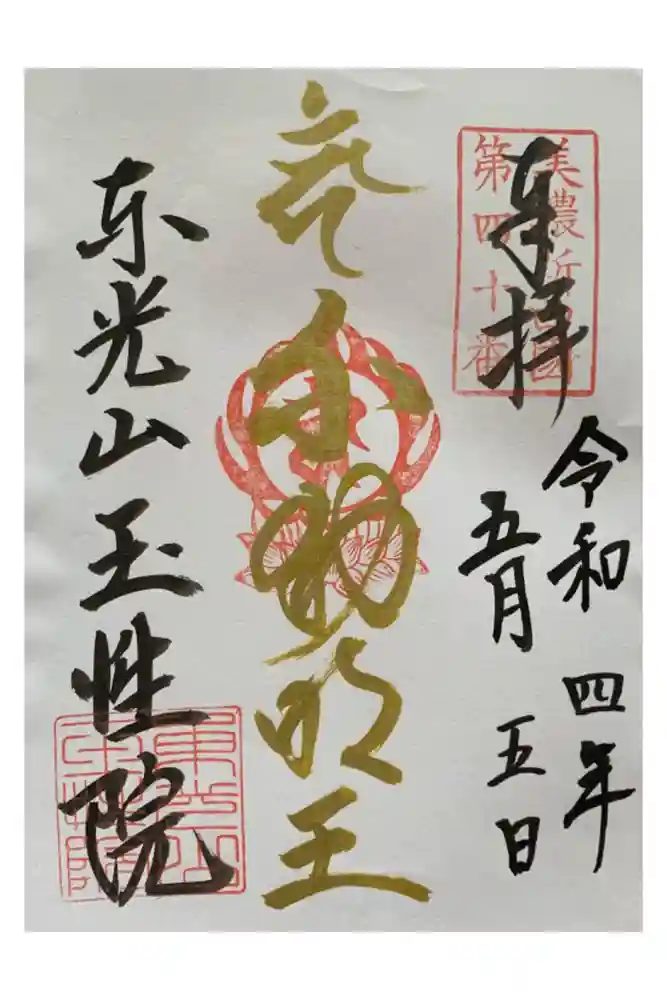 奉拝
美濃新四国
第四十番
令和四年
五月五日
不動明王
東光山玉性院
東光山
玉性院